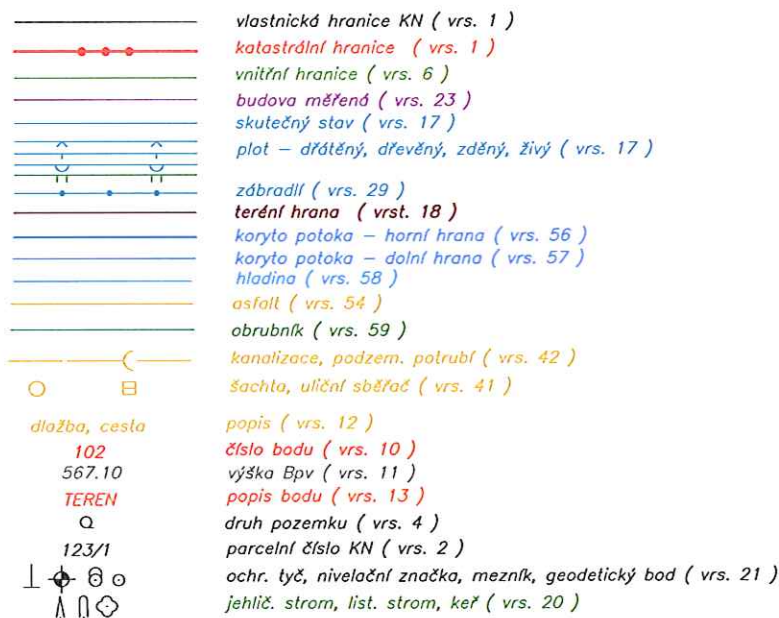 vlastnická hranice KN ( vrs. 1 )
katastrální hranice ( vrs. 1 )
vnitřní hranice ( vrs. 6 )
budova měřená ( vrs. 23 )
skutečný stav ( vrs. 17 )
plot – dřátěný, dřevěný, zděný, živý ( vrs. 17 )
zábradlí ( vrs. 29 )
terénní hrana ( vrst. 18 )
koryto potoka – horní hrana ( vrs. 56 )
koryto potoka – dolní hrana ( vrs. 57 )
hladina ( vrs. 58 )
asfalt ( vrs. 54 )
obrubník ( vrs. 59 )
kanalizace, podzem. potrubí ( vrs. 42 )
šachta, uliční sběřač ( vrs. 41 )
dlažba, cesta popis ( vrs. 12 )
102 číslo bodu ( vrs. 10 )
567.10 výška Bpv ( vrs. 11 )
TEREN popis bodu ( vrs. 13 )
druh pozemku ( vrs. 4 )
123/1 parcelní číslo KN ( vrs. 2 )
ochr. tyč, nivelační značka, mezník, geodetický bod ( vrs. 21 )
jehlič. strom, list. strom, keř ( vrs. 20 )